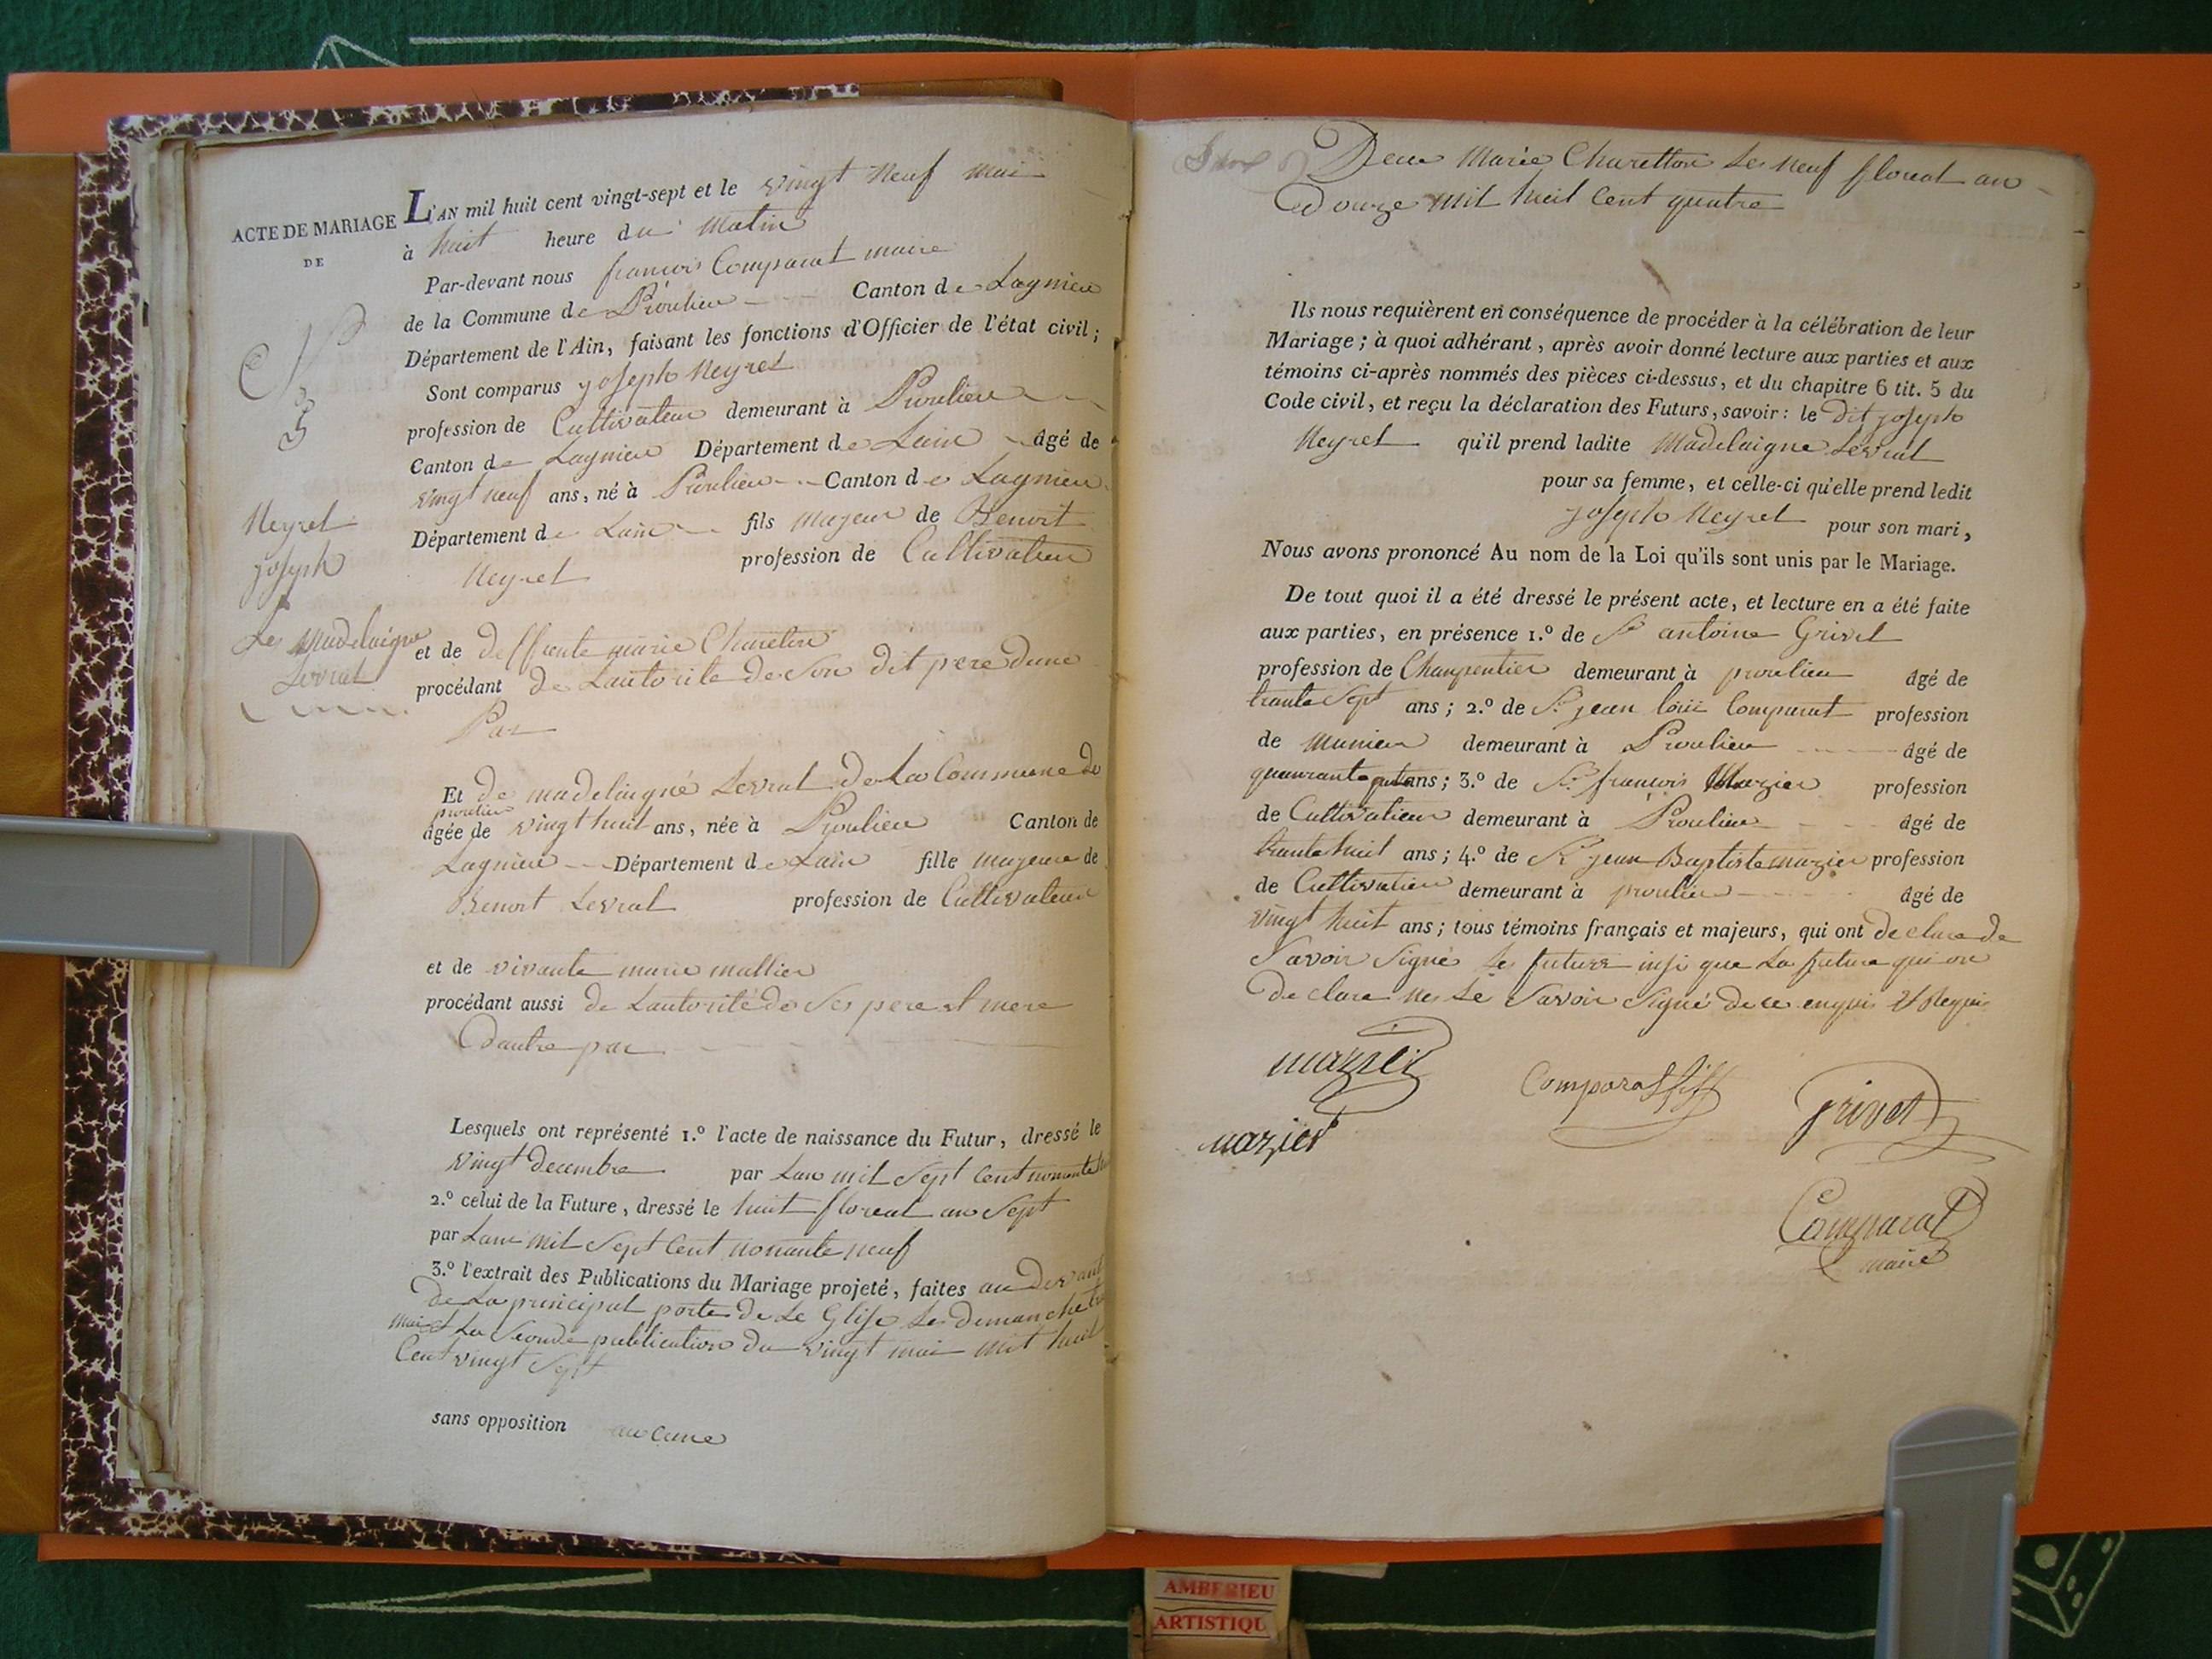 ACTE DE MARIAGE
DE
5
Neyret
joseph
&
Les Madelaigne
Levrat
L'AN mil huit cent vingt-sept et le vingt neuf mai
à huit heure du matin
Par-devant nous francois Comparat maire
de la Commune de Proulieu Canton de Lagnieu
Département de l'Ain, faisant les fonctions d'Officier de l'état civil;
Sont comparus joseph Neyret
profession de Cultivateur demeurant à Proulieu
Canton de Lagnieu Département de Lain âgé de
vingt neuf ans, né à Proulieu Canton de Lagnieu
Département de Lain fils majeur de Benoit
Neyret profession de Cultivateur
et de deffunte marie Chareton
procédant de Lautorite de Son dit pere dune
Par
Et de madelaigne Levrat de La Commune de
proulieu
âgée de vingt huit ans, née à Proulieu Canton de
Lagnieu Département de Lain fille majeure de
Benoit Levrat profession de Cultivateur
et de vivante marie mallier
procédant aussi de Lautorité de Ses pere et mere
Dautre par
Lesquels ont représenté 1.º l'acte de naissance du Futur, dressé le
vingt decembre par Lan mil Sept Cent nonante
2.º celui de la Future, dressé le huit floreal an Sept
par Lan mil Sept Cent nonante neuf
3.º l'extrait des Publications du Mariage projeté, faites au Devant
De La principal porte de Le Glise Le dimanche
mai et La Seconde publication du vingt mai mil huit
Cent vingt Sept
sans opposition aucune
Deux Marie Charetton Le neuf floreal an
Douze mil huit Cent quatre
Ils nous requièrent en conséquence de procéder à la célébration de leur
Mariage; à quoi adhérant, après avoir donné lecture aux parties et aux
témoins ci-après nommés des pièces ci-dessus, et du chapitre 6 tit. 5 du
Code civil, et reçu la déclaration des Futurs, savoir: le Dit joseph
Neyret qu'il prend ladite Madelaigne Levrat
pour sa femme, et celle-ci qu'elle prend ledit
joseph Neyret pour son mari,
Nous avons prononcé Au nom de la Loi qu'ils sont unis par le Mariage.
De tout quoi il a été dressé le présent acte, et lecture en a été faite
aux parties, en présence 1.º de Sr antoine Grivet
profession de Charpentier demeurant à proulieu âgé de
trante Sept ans; 2.º de Sr jean loui Comparat profession
de munier demeurant à Proulieu âgé de
quaurante ans; 3.º de Sr francois Mazier profession
de Cultivatieur demeurant à Proulieu âgé de
trante huit ans; 4.º de Sr jean Baptiste mazier profession
de Cultivatieu demeurant à proulieu âgé de
vingt huit ans; tous témoins français et majeurs, qui ont declare de
Savoir Signé Le future insi que La future qui on
De clare ne Le Savoir Signé de ce enquis et Requis
mazier
Comparat fils
grivet
mazier
Comparat
maire
AMBERIEU
ARTISTIQU